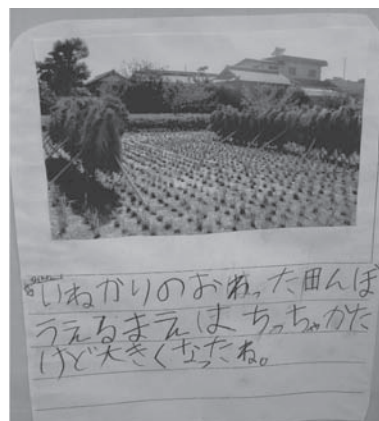 いねかりのおわった田んぼ
うえるまえは ちっちゃかた
けど大きくなったね。